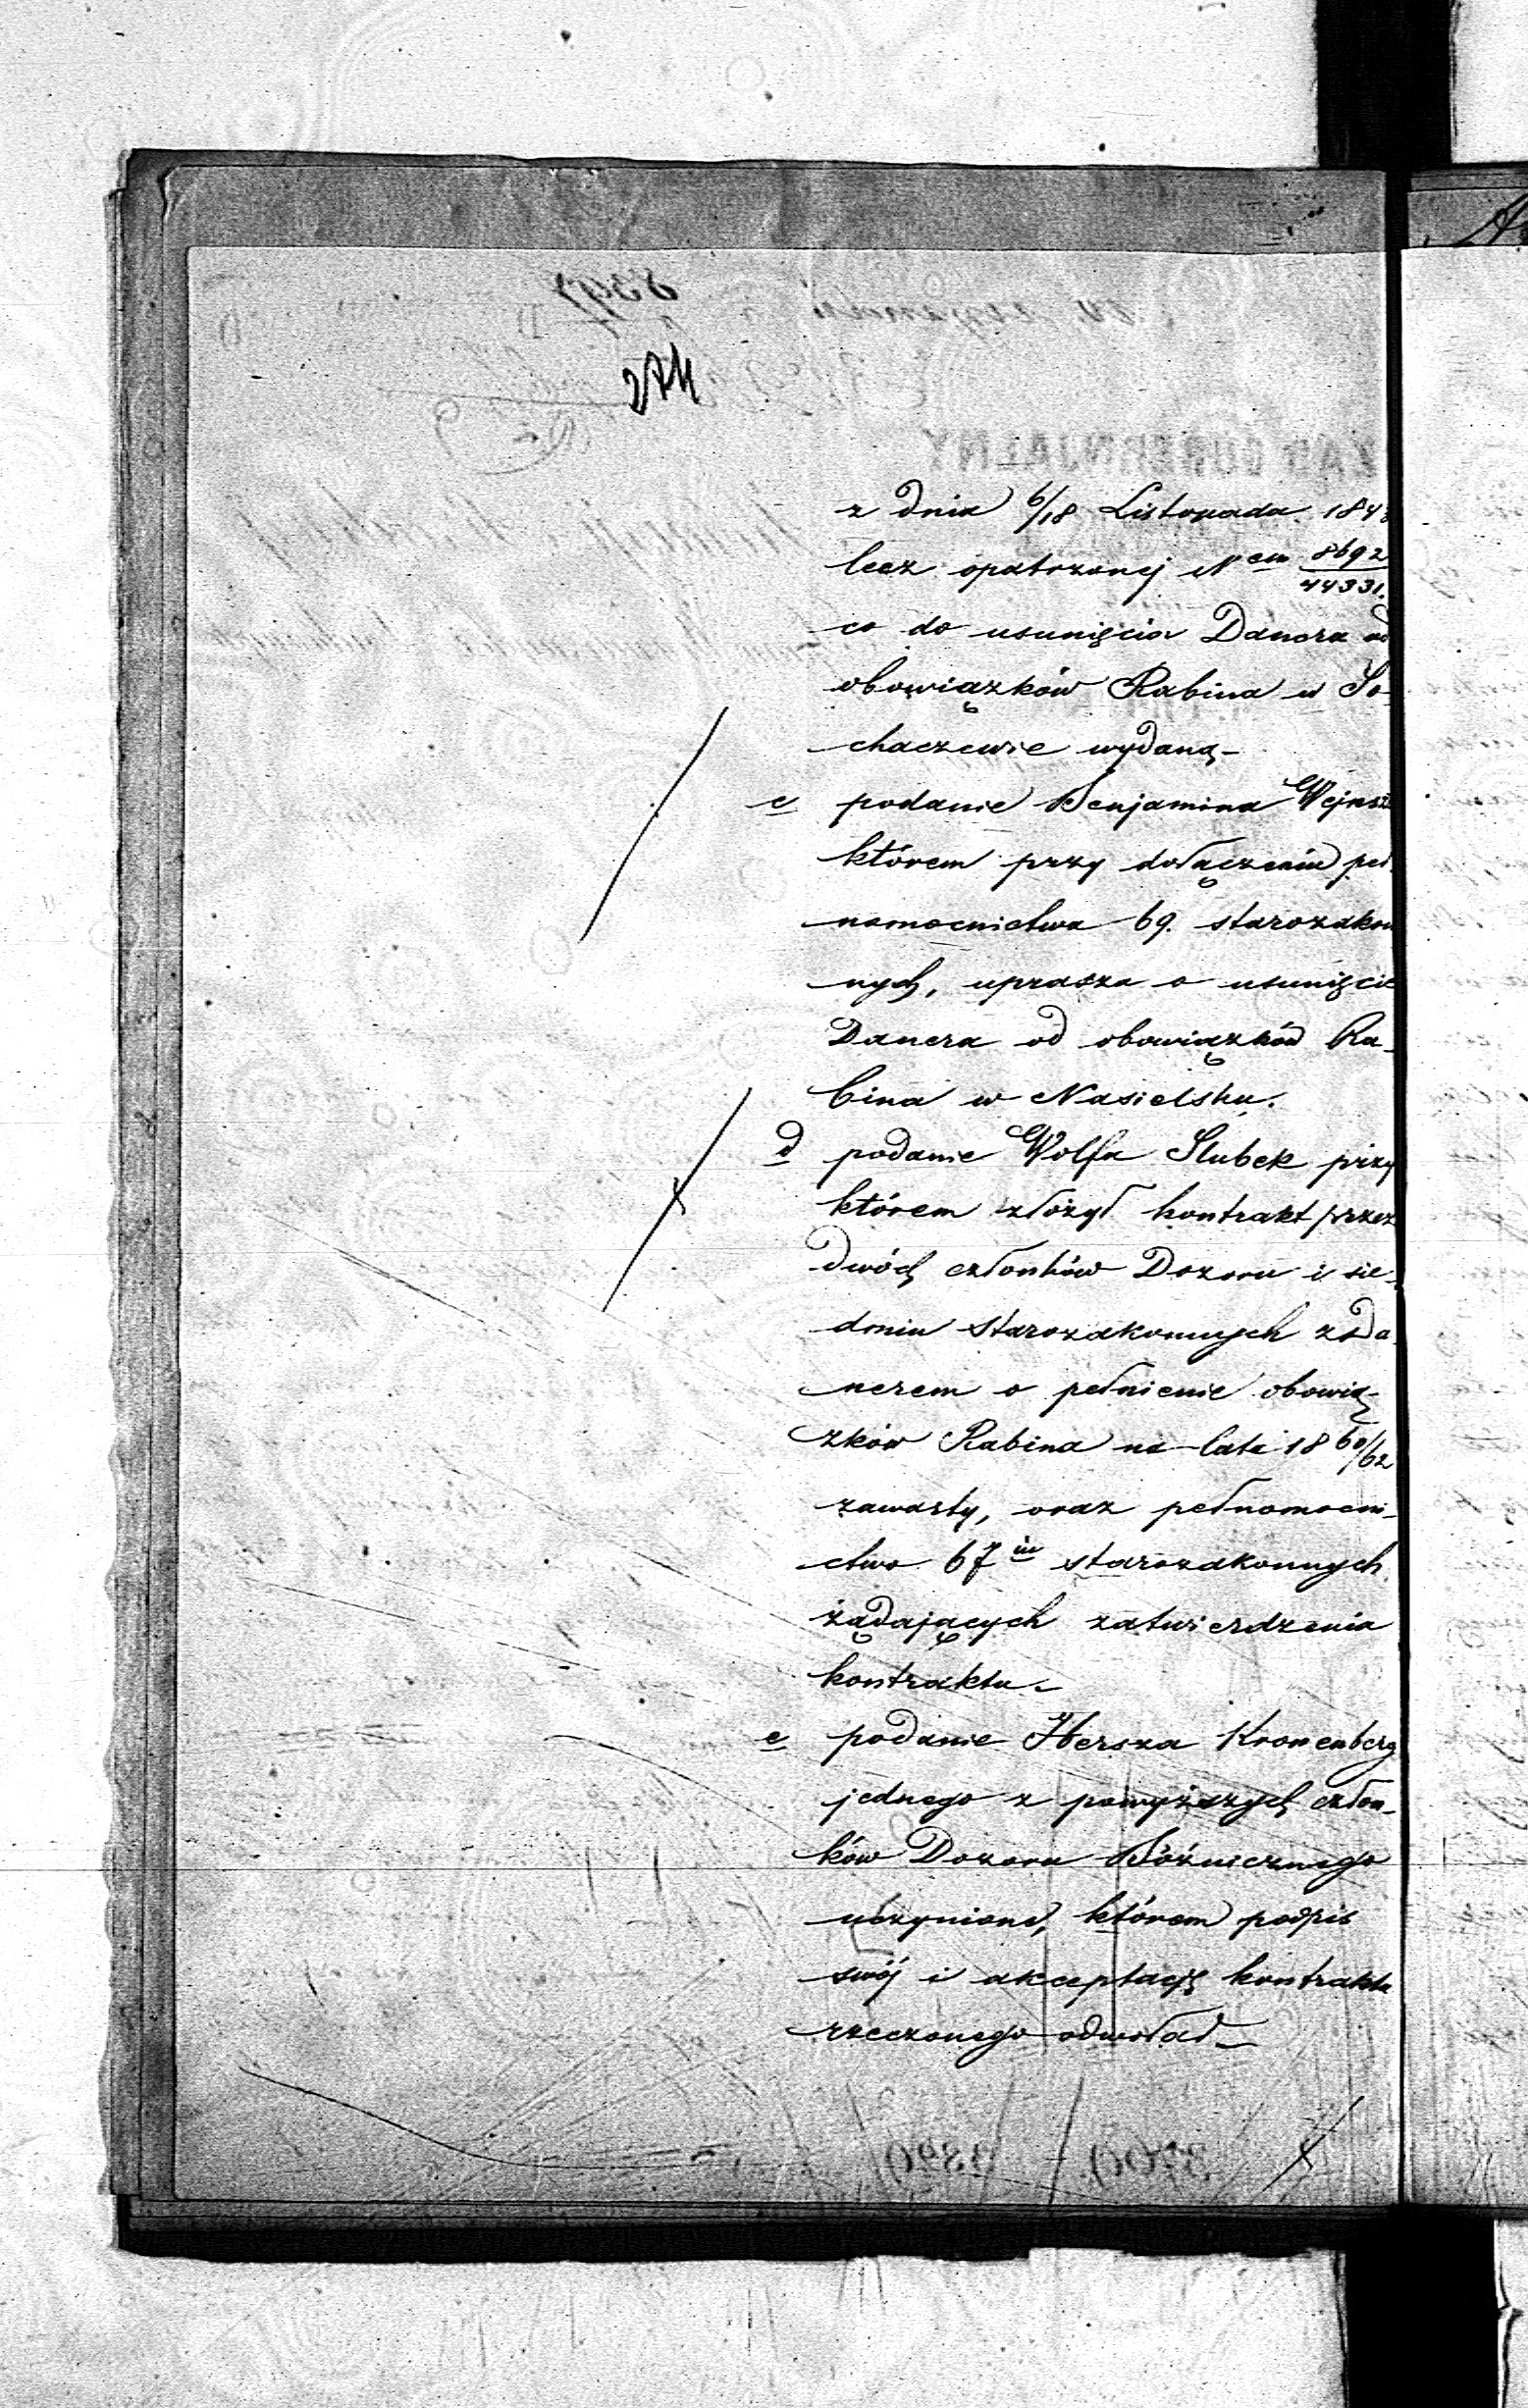 274
z dnia 6/18 Listopada 184
lecz opatrzonej Nem 8692/44331.
co do usunięcia Danera od
obowiązków Rabina w So-
chaczewie wydaną-
c podanie Benjamina Wejnsz
którem przy dołączeniu peł-
nomocnictwa 69. starozakon
nych, uprasza o usunięcie
Danera od obowiązków Ra-
bina w Nasielsku.
d podanie Wolfa Slubek przy
którem złożył kontrakt przez
dwóch członków Dozoru i sie-
dmiu starozakonnych z Da
nerem o pełnienie obowią-
zków Rabina na lata 1860/62
zawarty, oraz pełnomocni-
ctwo 67iu starozakonnych
żądających zatwierdzenia
kontraktu-
e podanie Herszka Kronenberg
jednego z powyższych człon-
ków Dozoru Bóźnicznego
uczynione, którem podpis
swój i akceptację kontraktu
rzeczonego odwołał-